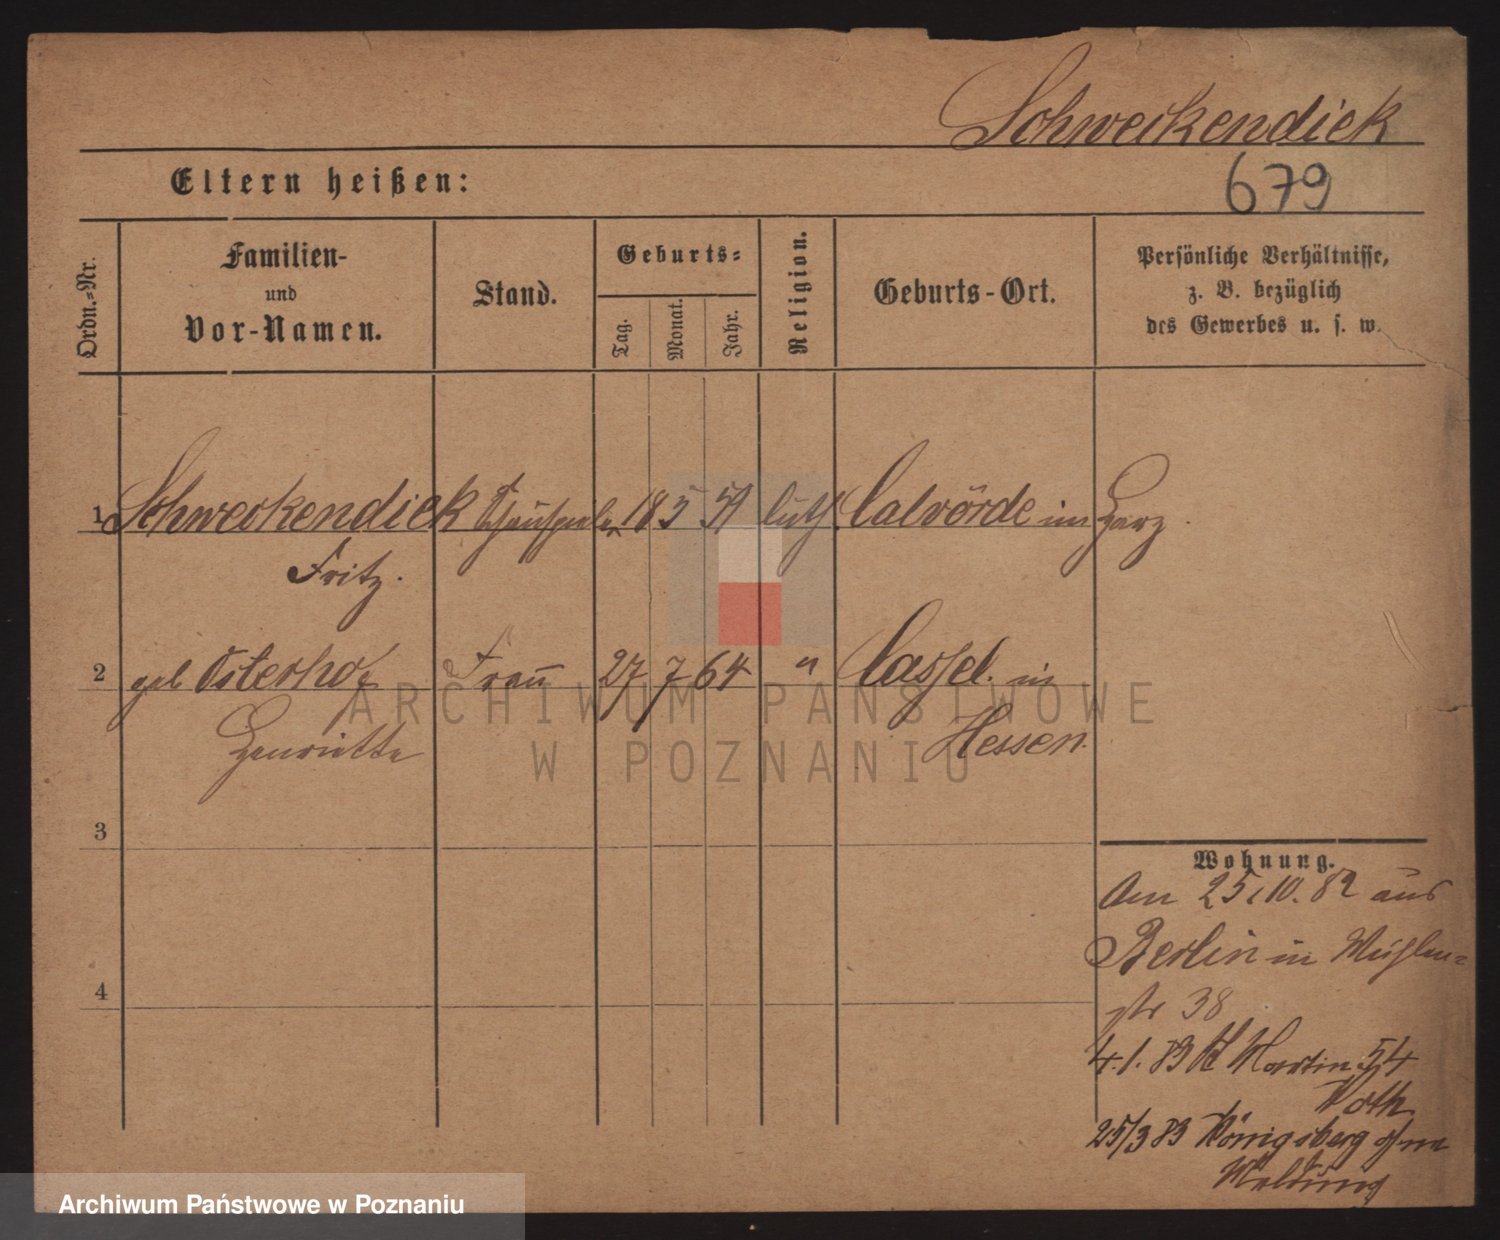 Schweckendiek
679
Eltern heißen:
Ordn.-Nr.
Familien-
und
Vor-Namen.
Stand.
Geburts-
Tag.
Monat.
Jahr.
Religion.
Geburts-Ort.
Persönliche Verhältnisse,
z. B. bezüglich
des Gewerbes u. s. w.
1 Schweckendiek Schauspieler 18 5 51 luth. Calvörde im Harz
Fritz.
2 geb Osterhof Frau 27 7 64 " Cassel. in
Henriette Hessen.
3
4
Wohnung.
Am 25.10.82 aus
Berlin in Mühlen-
str 38
4.1.83 Kl Martin 54
Woth
25/3 83 Königsberg ohne
Meldung
ARCHIWUM PAŃSTWOWE
W POZNANIU
Archiwum Państwowe w Poznaniu